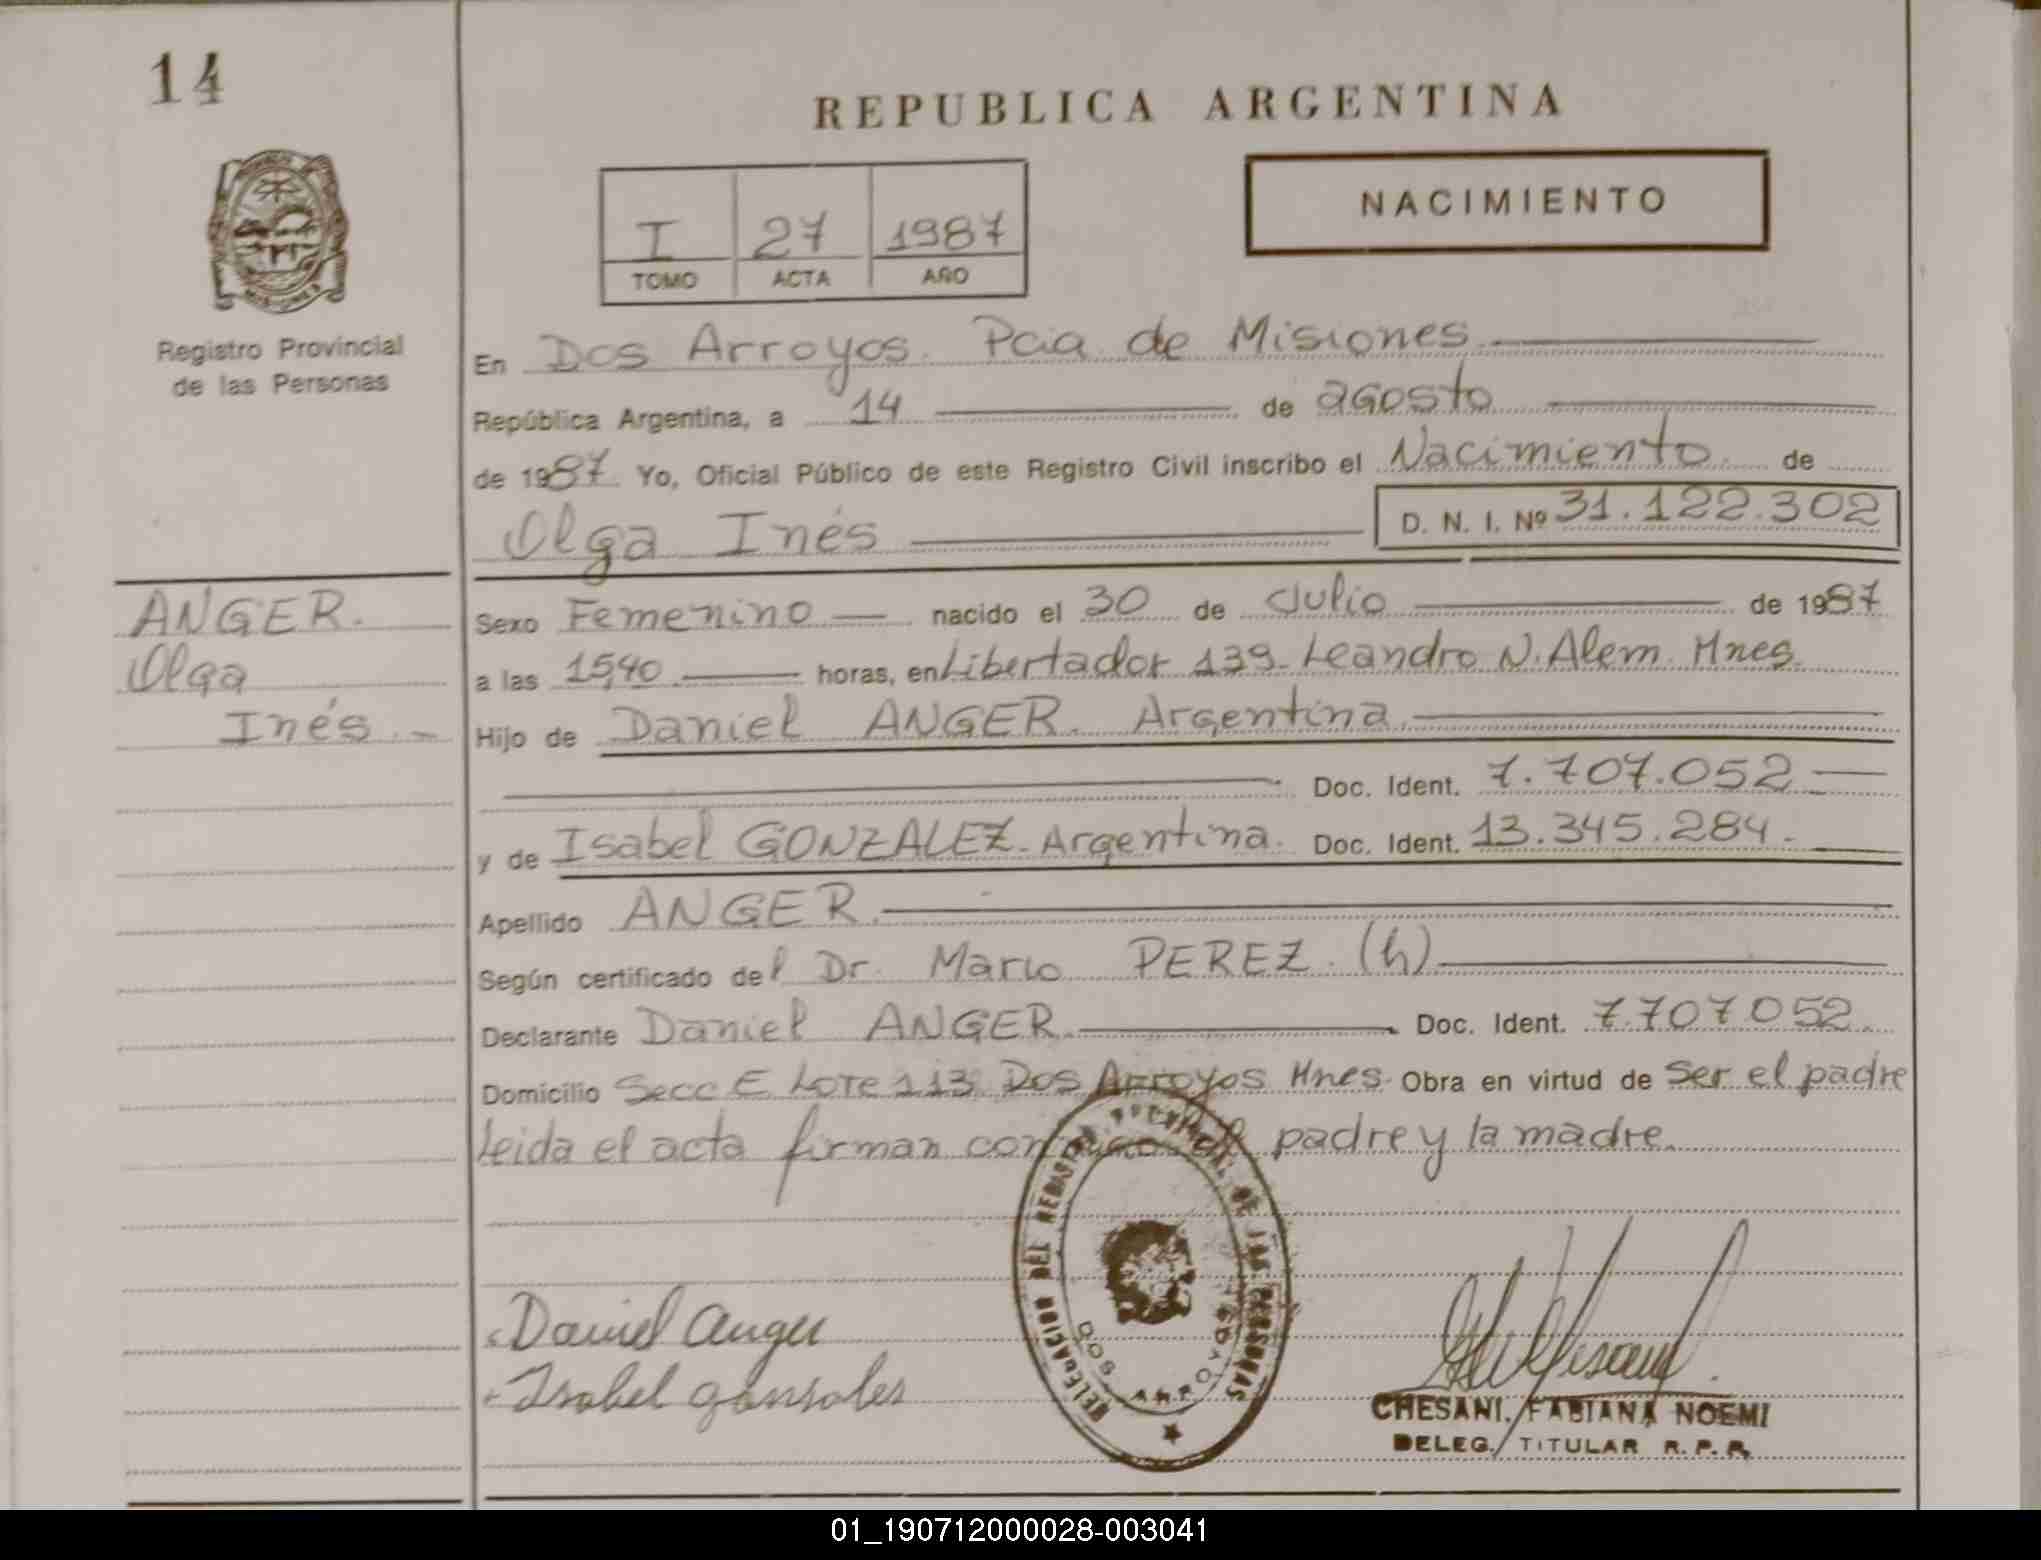 14
REPUBLICA ARGENTINA
NACIMIENTO
I 27 1987
TOMO ACTA AÑO
Registro Provincial
de las Personas
En Dos Arroyos. Pcia de Misiones
República Argentina, a 14 de agosto
de 1987 Yo, Oficial Público de este Registro Civil inscribo el Nacimiento de
Olga Inés D. N. I. Nº 31.122.302
ANGER.
Olga
Inés.-
Sexo Femenino nacido el 30 de Julio de 1987
a las 15,40 horas, en Libertador 139. Leandro N. Alem. Mnes.
Hijo de Daniel ANGER. Argentina.
Doc. Ident. 7.707.052
y de Isabel GONZALEZ. Argentina. Doc. Ident. 13.345.284.
Apellido ANGER.
Según certificado del Dr. Mario PEREZ. (h)
Declarante Daniel ANGER. Doc. Ident. 7.707052
Domicilio Secc E Lote 113 Dos Arroyos Mnes. Obra en virtud de ser el padre
Leida el acta firman el padre y la madre.
DELEGACION DEL REGISTRO PROVINCIAL DE LAS PERSONAS
DOS ARROYOS
Daniel Anger
Isabel gonsales
CHESANI, FABIANA NOEMI
DELEG. TITULAR R. P. P.
01_190712000028-003041